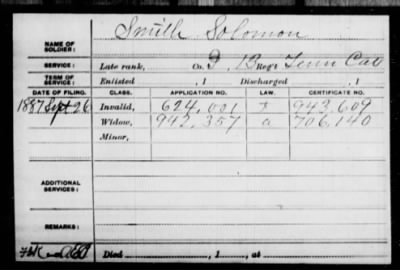 Smith Solomon
NAME OF SOLDIER:
SERVICE: Late rank, Co. 13 Reg't Tenn Cav
TERM OF SERVICE: Enlisted , 1 Discharged , 1
DATE OF FILING. CLASS. APPLICATION NO. LAW. CERTIFICATE NO.
1887 Sept 26 Invalid, 624,001 943,609
Widow, 942,357 a 706,140
Minor,
ADDITIONAL SERVICES:
REMARKS:
Died , 1 , at